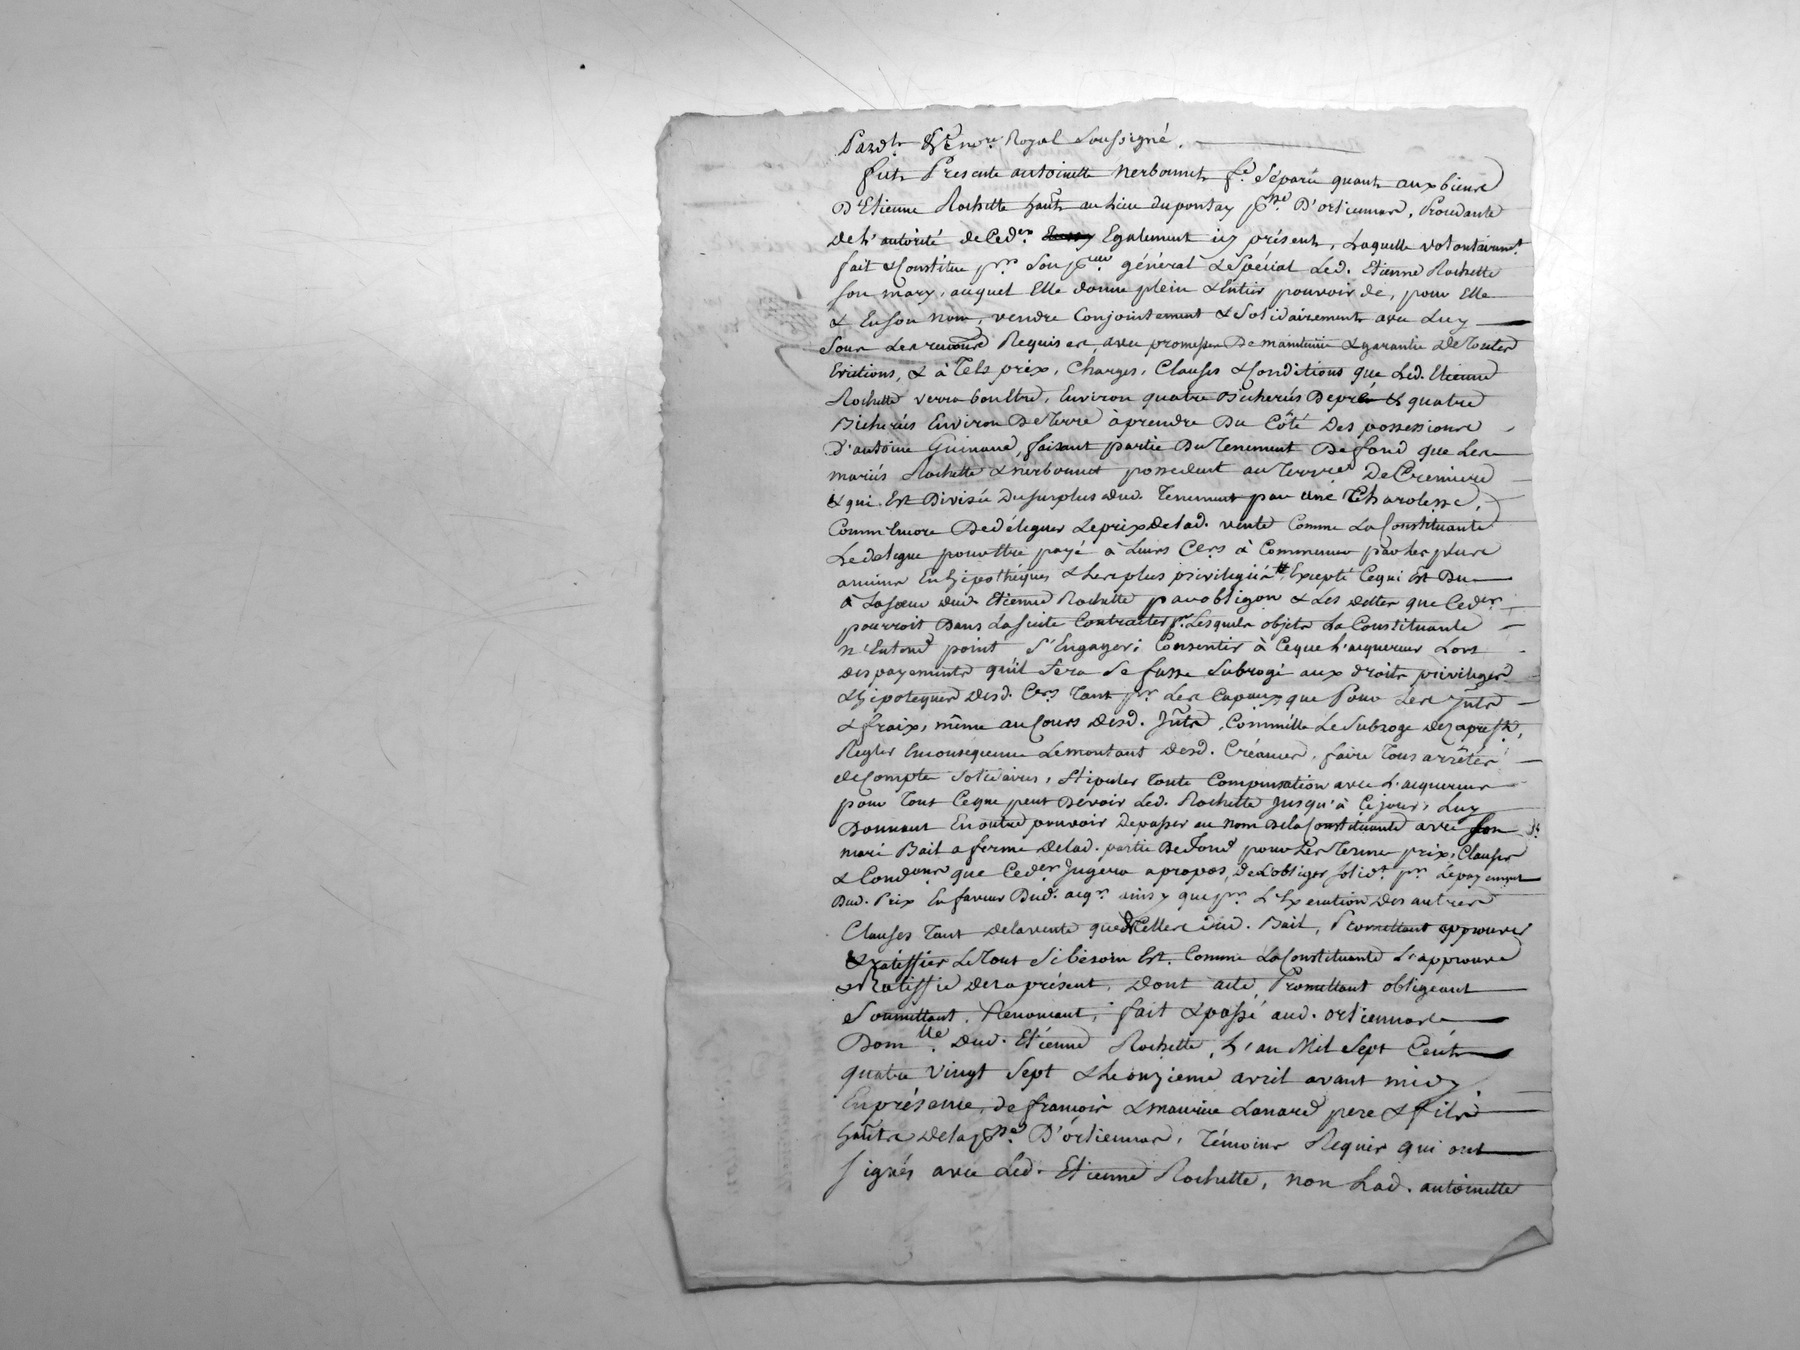 Pardt le nore Royal Soussigné.
fut Presente antoinette Nerbonnet fe Séparée quant aux biens
D'Etienne Rochette hañt au Lieu du pontay psse D'ortiennas, Procedante
de L'autorité de Ceder Egalement icy présent, Laquelle volontairemt
fait & Constitue pr Son pcur général & Spécial Led. Etienne Rochette
Son mary, auquel Elle donne plein & Entier pouvoir de, pour Elle
& En son nom, vendre Conjointement & Solidairement avec Luy
Sous Les renonc. Requises, avec promesse De maintenue & garantie de Toutes
Evictions, & à Tels prix, Charges, Clauses & Conditions que Led. Etienne
Rochette verra bon Etre, Environ quatre Bicherés De pré & quatre
Bicherés Environ De Terre à prendre Du Côté Des possessions
D'antoine Guinand, faisant partie Du Tenement De fond que Les
mariés Rochette & Nerbonnet possedent au Terroir De Cremiere
& qui Est Divisée Du Surplus dud. Tenement par une Charolesse,
Comm'Encore De déleguer Le prix de lad. vente Comme La Constituante
Le delegue pour Etre payé à Leurs Cers à Commencer par les plus
anciens En hipothéques & Les plus privilegiés Excepté Cequi Est Du
à La soeur dud. Etienne Rochette par obligon & Les dettes que Ceder
pourroit Dans La Suite Contracter pr Lesquels objets La Constituante
n'Entend point S'Engager; Consentir à Ceque L'acquereur Lors
des payements qu'il Fera Se fasse Subrogé aux droits privileges
& hipoteques Desd. Cers Tant pr Les Capaux que Pour Les Jnts
& fraix, même au Cours Desd. Jnts, Comm'Elle Le Subroge Dezaprest,
Regler En consequence Le montant Desd. Créances, faire Tous arrêtés
de Compte Solidaires, Stipuler Toute Compensation avec L'acquereur
pour Tout Ceque peut Devoir Led. Rochette Jusqu'à Ce jour, Luy
Donnant En outre pouvoir De passer au nom De la Constituante avec Son
mari Bail a ferme De lad. partie De Fond pour Les Terme prix, Clauses
& Condons que Ceder Jugera apropos, De L'obliger Solidt pr Le payement
Dud. Prix En faveur Dud. acqr ainsy que pr L'Execution Des autres
Clauses Tant De la vente que De Celles dud. Bail, Promettant approuver
& Ratiffier Le Tout Si besoin Est, Comme La Constituante L'approuve
& Ratiffie Des a présent, Dont acte, Promettant obligeant
Soumettant, Renonçant; fait & passé aud. ortiennas
Domlle Dud. Etienne Rochette, L'an Mil Sept Cent
quatre Vingt Sept & Le onzieme avril avant midy
En présence, de françois & maurice Lanard pere & fils
hañts De la psse D'ortiennas, Témoins Requis qui ont
Signés avec Led. Etienne Rochette, non Lad. antoinette